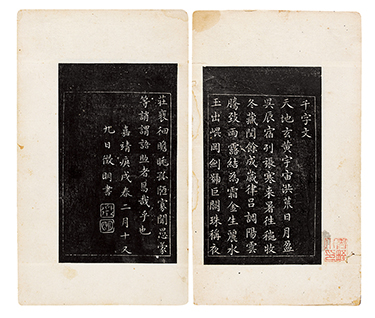 千字文
天地玄黃宇宙洪荒日月盈
昃辰宿列張寒來暑往秋收
冬藏閏餘成歲律呂調陽雲
騰致雨露結為霜金生麗水
玉出崐岡劍號巨闕珠稱夜
莊裵徊瞻眺孤陋寡聞愚蒙
等誚謂語助者焉哉乎也
嘉靖庚戌春二月十又
九日徵明書